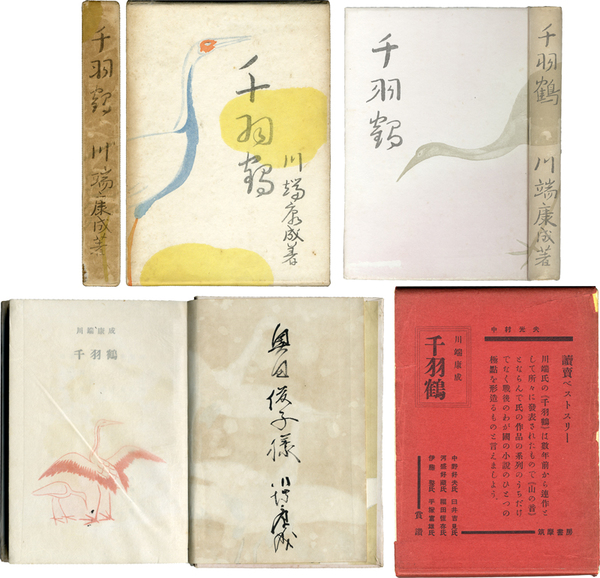 千羽鶴 川端康成著
千羽鶴
川端康成著
千羽鶴
千羽鶴 川端康成著
川端康成
千羽鶴
奥田俊子様
川端康成
中村光夫
讀賣ベストスリー
川端氏の《千羽鶴》は數年前から連作と
して所々に發表されたもので《山の音》
とならんで氏の作品の系列のうちだけ
でなく戰後のわが國の小說のひとつの
極點を形造るものと言えましよう。
川端康成
千羽鶴
中野好夫氏 臼井吉見氏
河盛好藏氏 福田恆存氏
伊藤 整氏
賞讃
筑摩書房